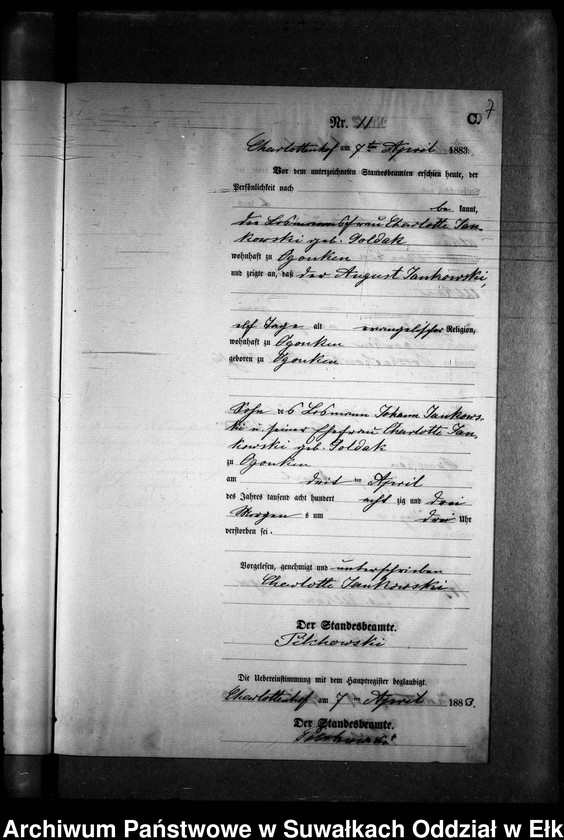 7
Nr. 11 C.
Charlottenhof am 7ten April 1883.
Vor dem unterzeichneten Standesbeamten erschien heute, der
Persönlichkeit nach
be kannt,
die Losmannsfrau Charlotte Jan-
kowski geb. Goldak,
wohnhaft zu Ogonken
und zeigte an, daß der August Jankowski,
elf Tage alt evangelischer Religion,
wohnhaft zu Ogonken
geboren zu Ogonken
Sohn des Losmann Johann Jankows-
ki u seiner Ehefrau Charlotte Jan-
kowski geb. Goldak
zu Ogonken
am dritten April
des Jahres tausend acht hundert acht zig und drei
Morgen s um drei Uhr
verstorben sei.
Vorgelesen, genehmigt und unterschrieben
Charlotte Jankowski
Der Standesbeamte.
Die Uebereinstimmung mit dem Hauptregister beglaubigt.
Charlottenhof am 7ten April 1883.
Der Standesbeamte.
Archiwum Państwowe w Suwałkach Oddział w Ełk